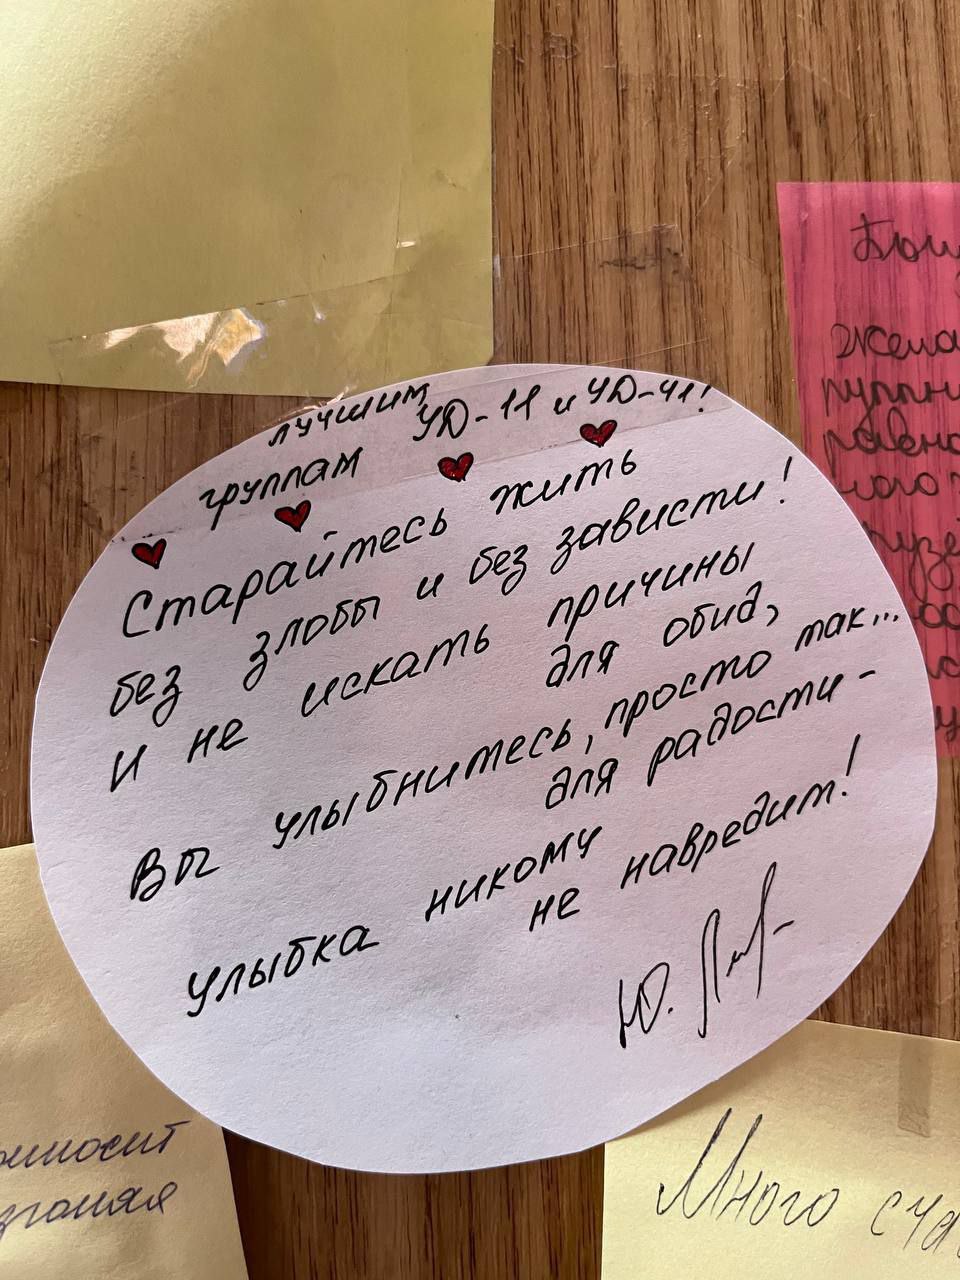 лучшим
группам УД-11 и УД-41!
Старайтесь жить
без злобы и без зависти!
И не искать причины
для обид,
Вы улыбнитесь, просто так...
для радости -
улыбка никому
не навредит!
Ю.
Много